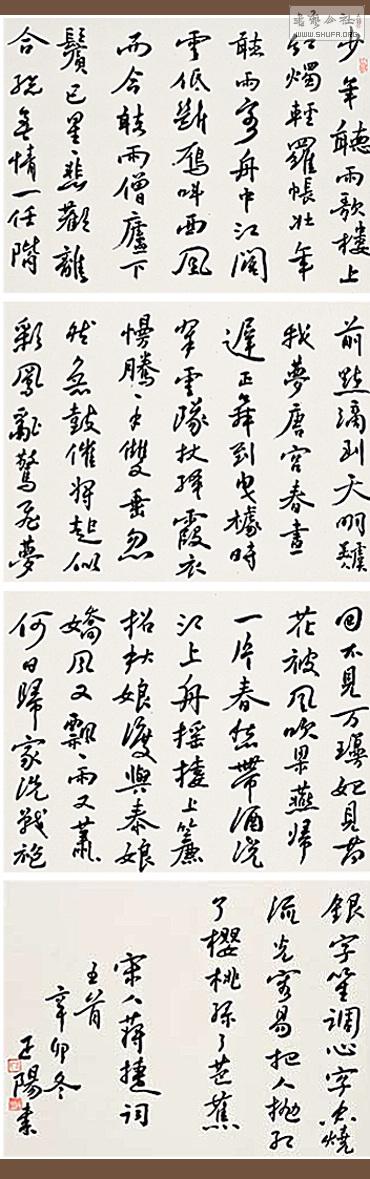 少年聽雨歌樓上
紅燭輕羅帳壯年
聽雨客舟中江闊
雲低斷雁叫西風
而今聽雨僧廬下
鬢已星悲歡離
合總無情一任階
前點滴到天明
我夢唐宮春晝
遲正舞到曳裾時
翠雲隊仗絳霞衣
慢騰〻手雙垂忽
然急鼓催將起似
彩鳳亂驚飛夢
回不見万瓊妃見荷
花被風吹燕歸
一片春愁帶酒澆
江上舟搖樓上簾
招秋娘渡與泰娘
嬌風又飄〻雨又蕭〻
何日歸家洗戰袍
銀字笙調心字香燒
流光容易把人拋紅
了櫻桃綠了芭蕉
宋人蔣捷詞
首
辛卯冬
正陽書
書藝公社
WWW.SHUFA.ORG